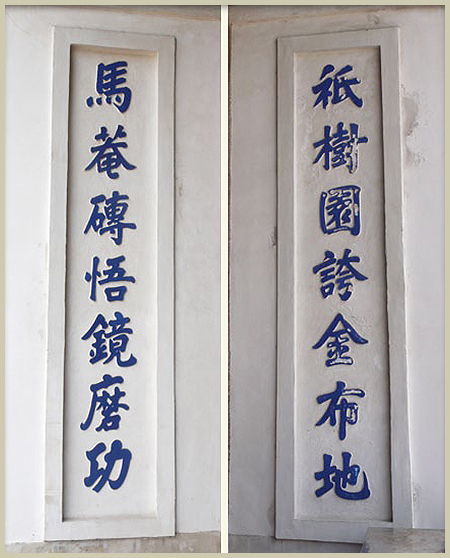 祇樹園誇金布地
馬菴磚悟鏡磨功